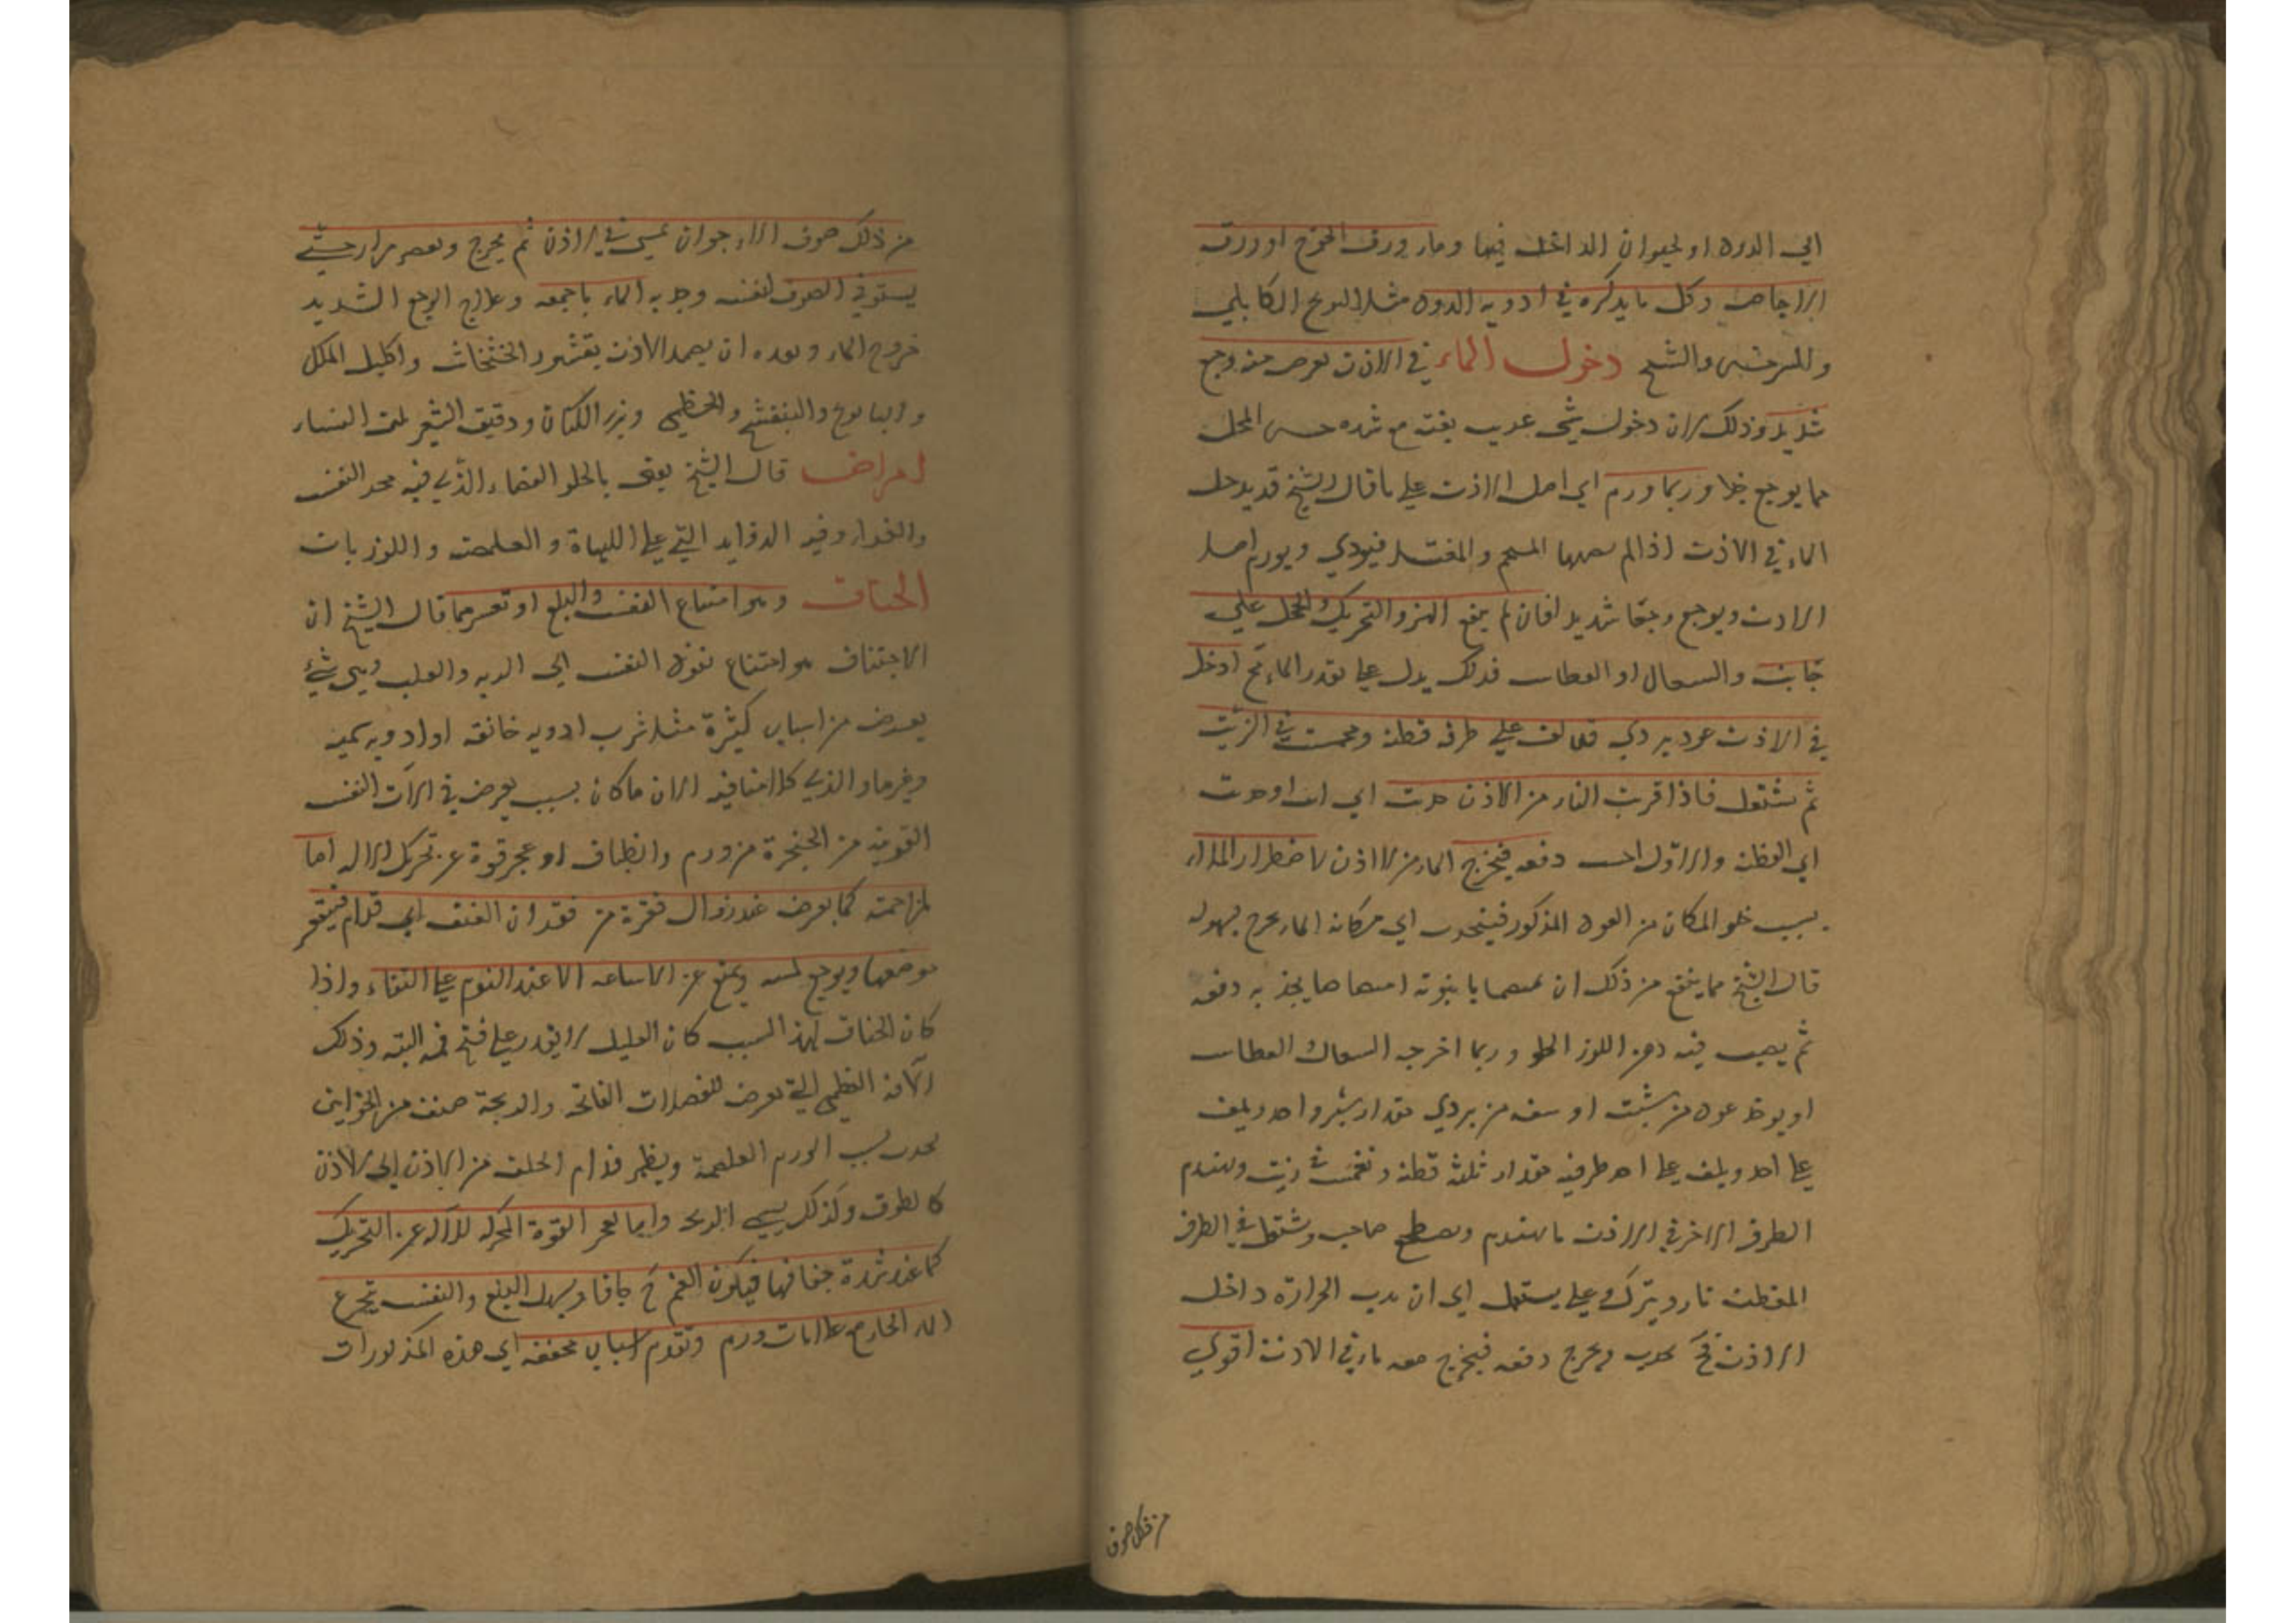 الي الدود او الحيوان الداخل فيها وماء ورق الخوخ او ورق
الاجاص وكل ما يذكره في ادويه الدود مثل البرنج الكابلي
والسرخس والشيح دخول الماء في الاذن يعرض منه وجع
شديد وذلك لان دخول شي غريب بغتة مع شده حس المحل
مما يوجع جدا وربما ورم اي اصل الاذن علي ما قال الشيخ قد يدخل
الماء في الاذن اذا لم المستحم والمغتسل فيودي ويورم اصل
الاذن ويوجع وجعا شديدا فان لم ينفع الهز والتحريك والحجل علي
جانب والسعال او العطاس فذلك يدل علي الماء ادخل
في الاذن عود بردي قد لف علي طرفه قطنة وغمست في الزيت
ثم تشتعل فاذا قربت النار من الاذن اي
اي القطنة والاول دفعه فيخرج الماء من الاذن لاضطرار الخلاء
بسبب خلو المكان من العود المذكور فينجذب الي مكانه الماء يخرج بسهوله
قال الشيخ مما ينفع من ذلك ان يمصها بانبوبة امتصاصا يجذبه دفعه
ثم يصب فيه دهن اللوز الحلو وربما اخرجه السعال العطاس
او يوخذ عود من شبث او من بردي مقدار شبر واحد ويلف
علي احد ويلف علي احد طرفيه مقدار ثلثه قطنة وتغمست في زيت ويهندم
الطرف الاخر في الاذن ما يهندم ويضطجع صاحبه وتشتعل في الطرف
المقطن نار ويترك علي يشتعل الي ان الحرارة داخل
الاذن فح يجذب ويخرج دفعه فيخرج معه ماء في الاذن اقوي
من ذلك صوف
من ذلك صوف الارجوان يحشي في الاذن ثم يخرج ويعصر مرارا حتي
يستوفي الصوف لنفسه وجذبه الماء باجمعه وعلاج الوجع الشديد
خروج الماء وبعده ان يضمد الاذن بقشور الخشخاش واكليل الملك
والبابونج والبنفسج والخطمي وبزر الكتان ودقيق الشعير بلبن النساء
امراض قال الشيخ يعني بالحلق الفضاء الذي فيه مجري النفس
والغذاء وفيه الزوايد التي علي اللهاة والغلصمة واللوزيات
الخناق وهو امتناع النفس والبلع او تعسرهما قال الشيخ ان
الاختناق هو امتناع نفوذ النفس الي الريه والقلب وهي شئ
يعرض من اسباب كثيرة مثل شرب ادويه خانقه او ادويه سميه
وغيرها والذي كلامنا فيه الان ما كان بسبب يعرض في الات النفس
القريبة من الحنجرة من ورم وانطباق او عجز قوة عن تحريك الاله اما
لمزاحمته كما يعرض عند زوال فقرة من فقدان العنق الي قدام فيتقعر
موضعها ويوجع لمسه ويمنع عن الاساغه الا عند النوم علي القفاء واذا
كان الخناق بهذا السبب كان العليل لا يقدر علي فتح فمه البتة وذلك
الآفة العظمي التي تعرض للعضلات الفاتحه والذبحة صنف من الخوانيق
يحدث بسبب الورم الغلصمة ويظهر قدام الحلق من الاذن الي الاذن
كالطوق وكذلك يسمي الذبحه واما لعجز القوة المحركه للآله عن التحريك
كما عند شدة جفافها فيكون الفم ح جافا ويسهل البلع والنفس بتجرع
الماء الحار مع علامات ورم وتقدم اسباب مجففه اي هذه المذكورات